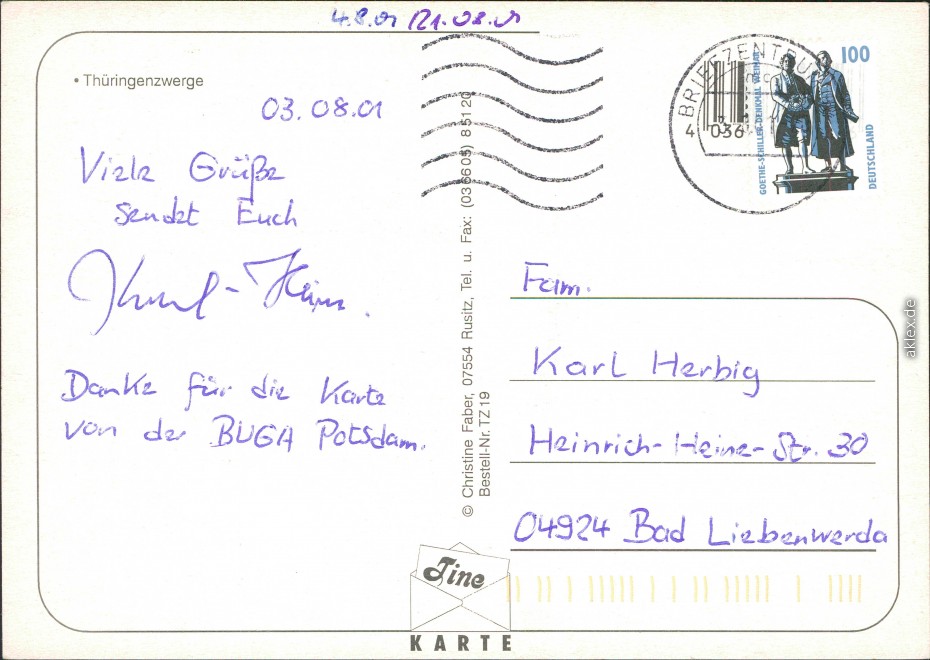 4.8.01 /21.08.01
• Thüringenzwerge
03.08.01
Viele Grüße
sendet Euch
Karl-Heinz.
Danke für die Karte
von der BUGA Potsdam.
© Christine Faber, 07554 Rusitz, Tel. u. Fax: (036605) 85120
Bestell-Nr. TZ 19
BRIEFZENTRUM
4 036
100
GOETHE-SCHILLER-DENKMAL WEIMAR
DEUTSCHLAND
Fam.
Karl Herbig
Heinrich-Heine-Str. 30
04924 Bad Liebenwerda
Tine
KARTE
aklex.de